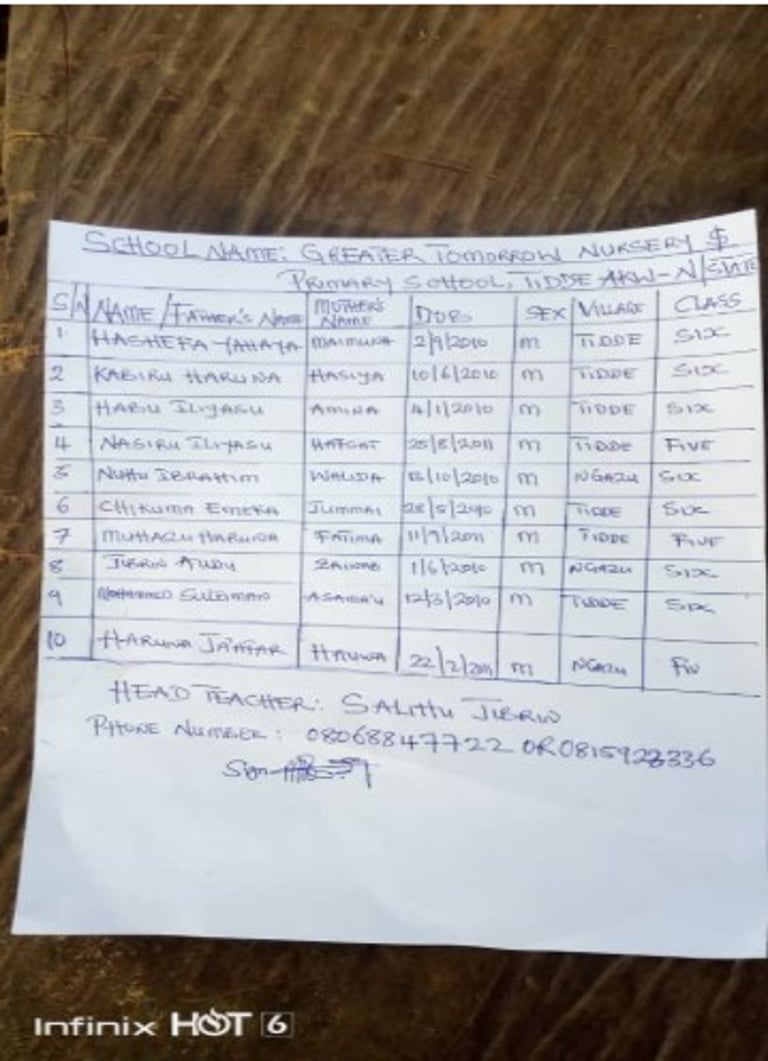 SCHOOL NAME: GREATER TOMORROW NURSERY $
PRIMARY SCHOOL, TIDDE AKW-N/STATE
S/N NAME/FATHER'S NAME MOTHER'S NAME DOB SEX VILLAGE CLASS
1. HASHEFA YAHAYA MAIMUNA 2/9/2010 m TIDDE SIX
2 KABIRU HARUNA HASIYA 10/6/2010 m TIDDE SIX
3 HABU ILIYASU AMINA 4/1/2010 m TIDDE SIX
4 NASIRU ILIYASU HAFSAT 25/8/2011 m TIDDE FIVE
5 NUHU IBRAHIM WALIDA /10/2010 m NGAZU SIX
6 CHIKUMA EMEKA JUMMAI 28/5/2010 m TIDDE SIX
7 MUHAZU HARUNA FATIMA 11/9/2011 m TIDDE FIVE
8 JIBRIN AUDU ZAINAB 1/6/2010 m NGAZU SIX
9 SULEMAN ASABA'U 12/3/2010 m TIDDE SIX
10 HARUNA JA'AFAR HAUWA 22/2/2011 m NGAZU FIV
HEAD TEACHER: SALIHU JIBRIN
PHONE NUMBER: 08068847722 OR 0815923336
Sign
Infinix HOT 6